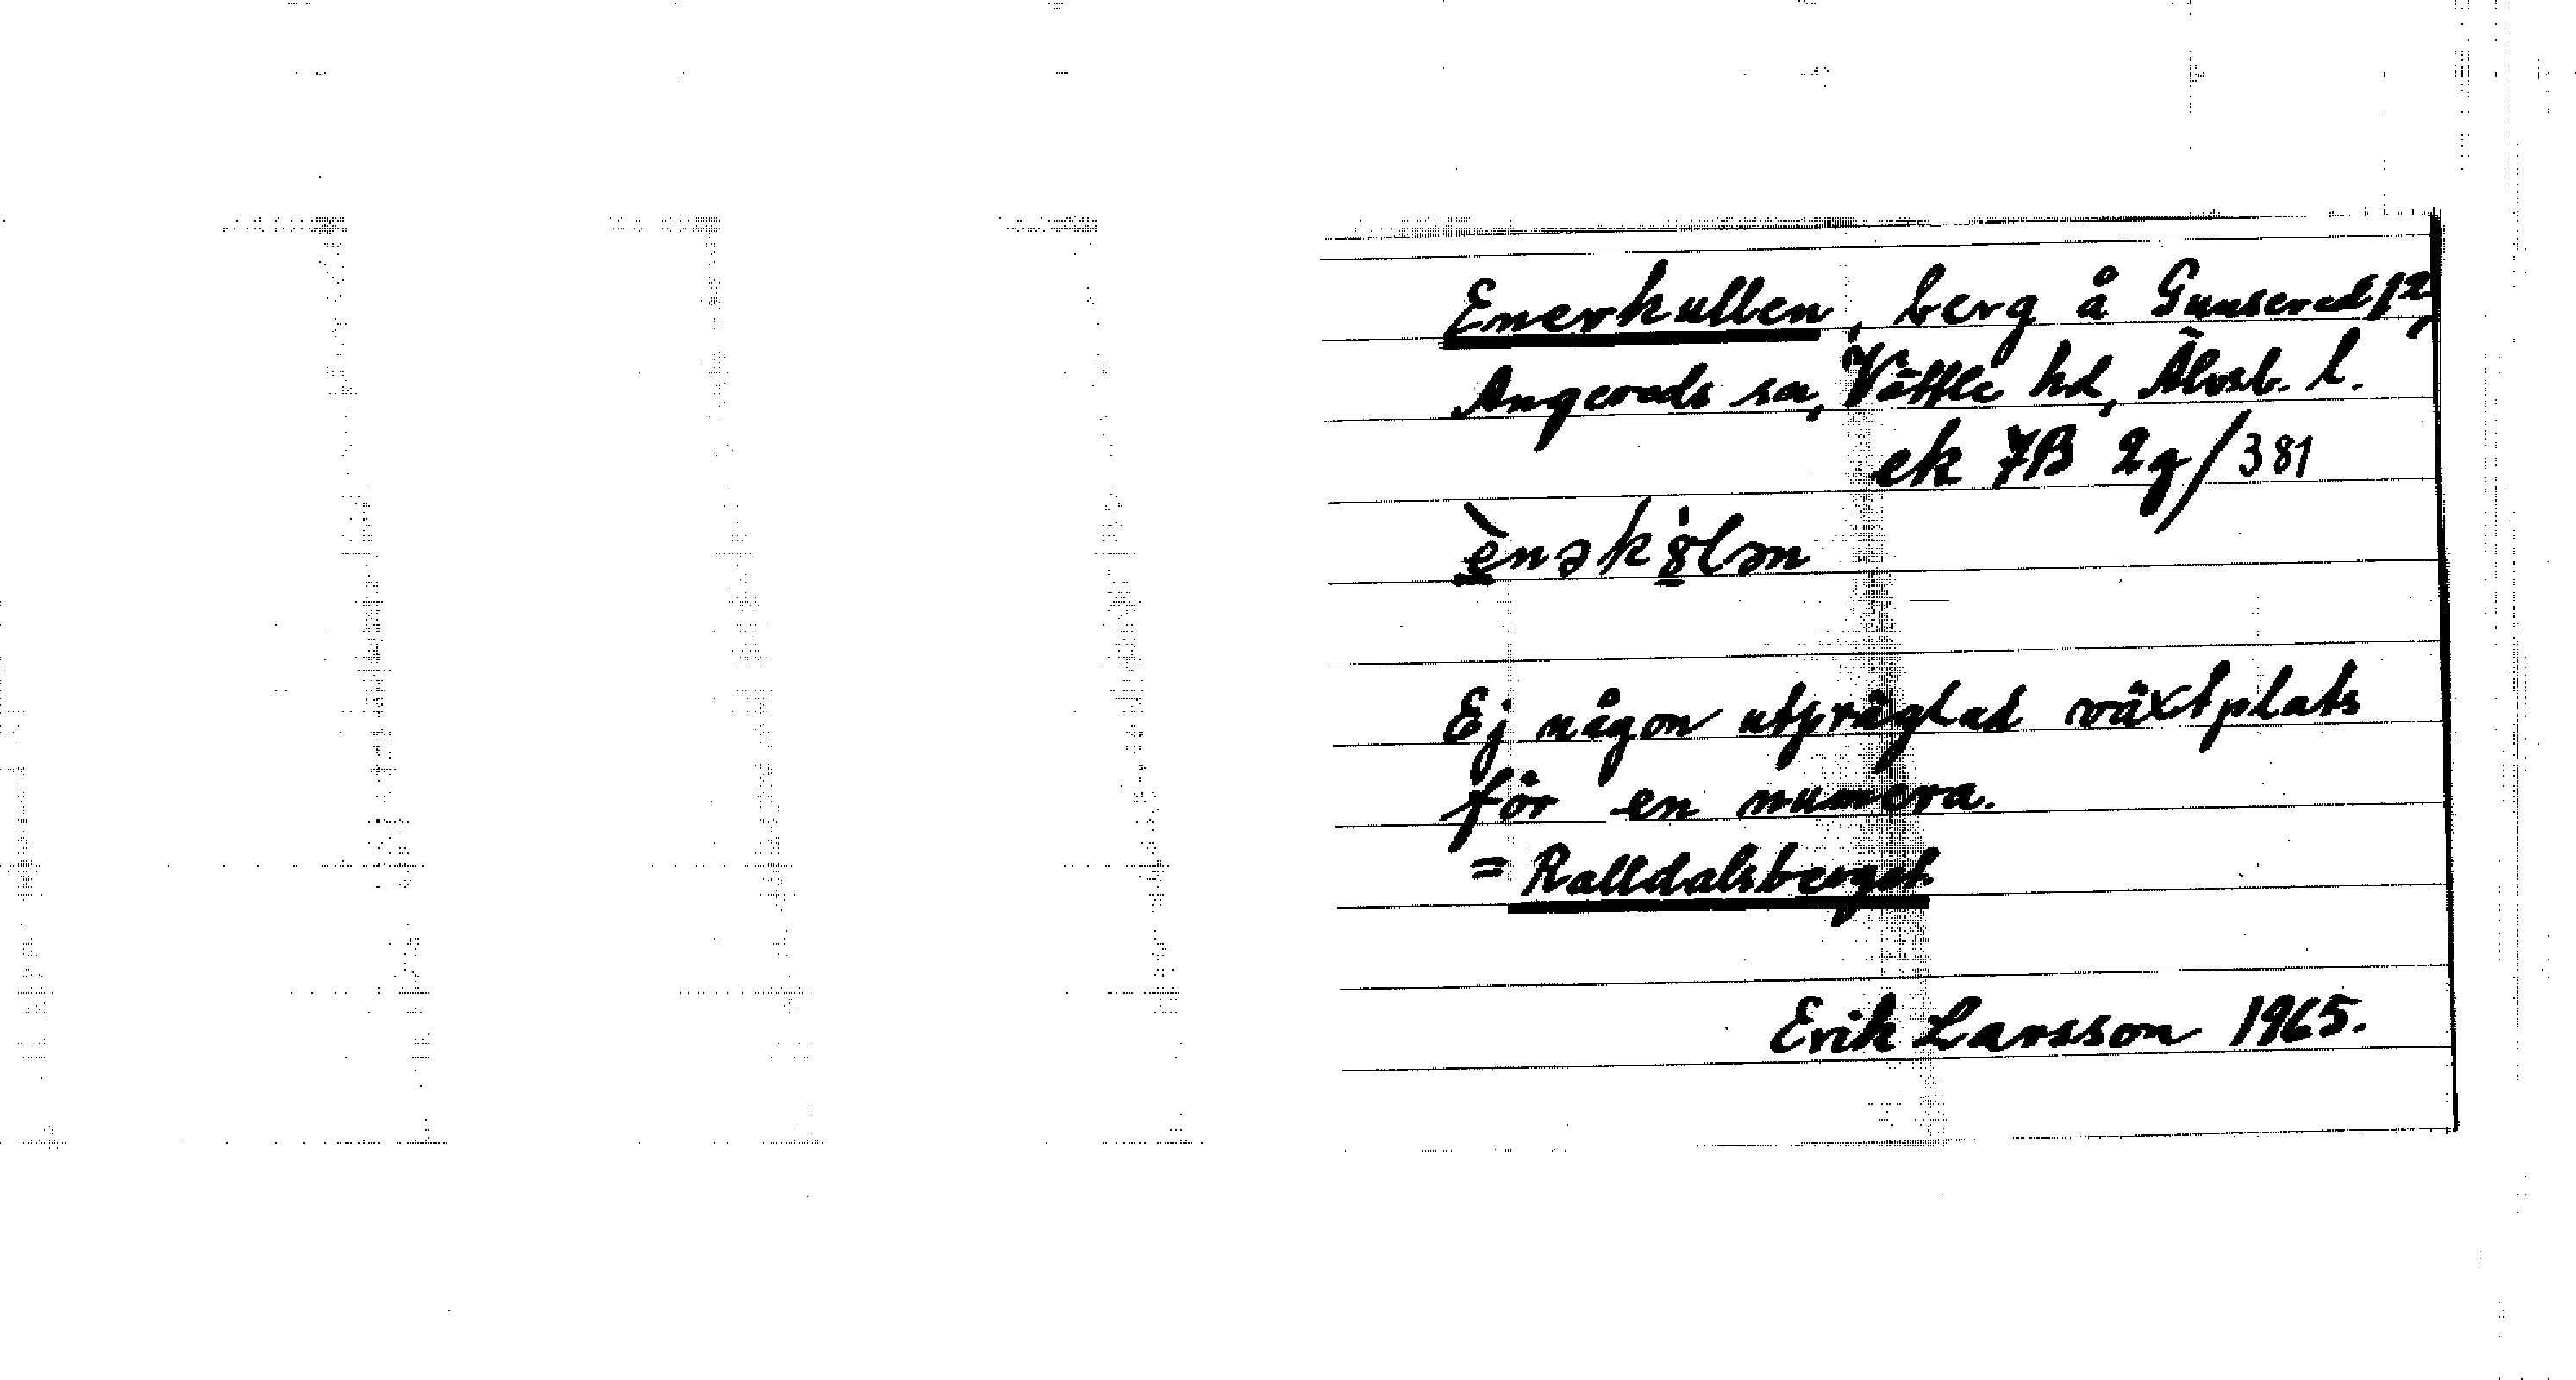 Enerkullen, berg å Gunsered 1²,
Angereds sn, Vättle hd, Älvsb. l.
ek 7B 2g/381
ènəkȣ̍lən
Ej någon utpräglad växtplats
för en numera.
= Ralldalsberget
Erik Larsson 1965.